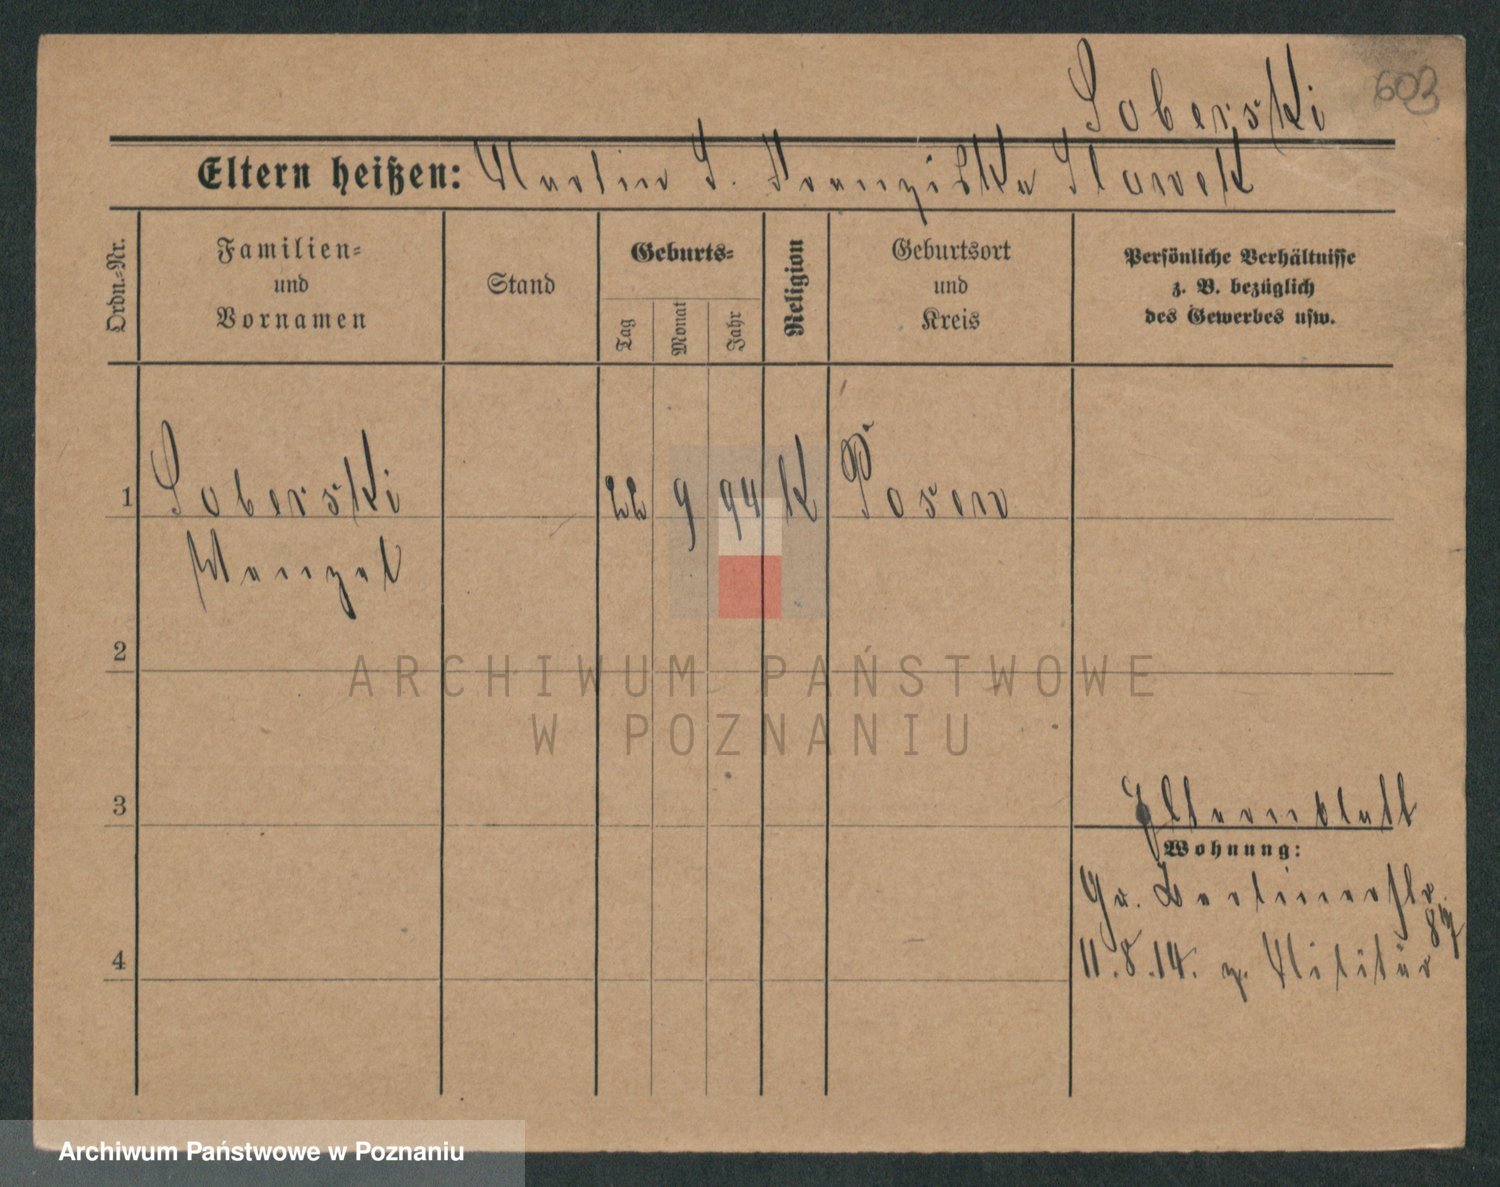 603
Soberski
Eltern heißen: Martin S. Franziska Slawek
Ordn.-Nr.
Familien-
und
Vornamen
Stand
Geburts-
Tag
Monat
Jahr
Religion
Geburtsort
und
Kreis
Persönliche Verhältnisse
z. B. bezüglich
des Gewerbes usw.
1 Soberski 22 9 94 K Posen
Wenzel
2
3
Elternblatt
Wohnung:
Gr. Berlinerstr.
4 11.8.14. z. Militär
ARCHIWUM PAŃSTWOWE
W POZNANIU
Archiwum Państwowe w Poznaniu